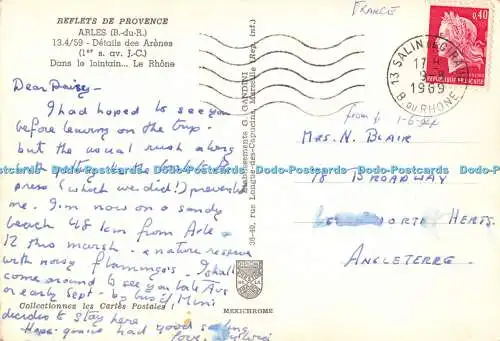 REFLETS DE PROVENCE
ARLES (B.-du-R.)
13.4/59 - Détails des Arènes
(1er s. av. J.-C.)
Dans le lointain... Le Rhône
Dear Daisy -
I had hoped to see you
before leaving on the trip -
but the usual rush along
press (which we did!) prevented
me. I'm now on a sandy
beach 48 km from Arles
this marsh - a nature reserve
with noisy flamingo's. I shall
come around to see you late Aug
or early Sept - by bus if Mimi
decides to stay here
Hope you've had good sailing
Love,
Collectionnez les Cartes Postales !
Etablissements G. GANDINI
36-40, rue Longue-des-Capucins, Marseille (Rep. int.)
MEXICHROME
FRANCE
0,40
REPUBLIQUE FRANÇAISE
13 SALIN DE GIRAUD
17 H
1969
B. DU RHONE
MRS. N. BLAIR
18 BROADWAY
HERTS.
ANGLETERRE.
Dodo-Postcards Dodo-Postcards Dodo-Postcards Dodo-Postcards Dodo-Postcards